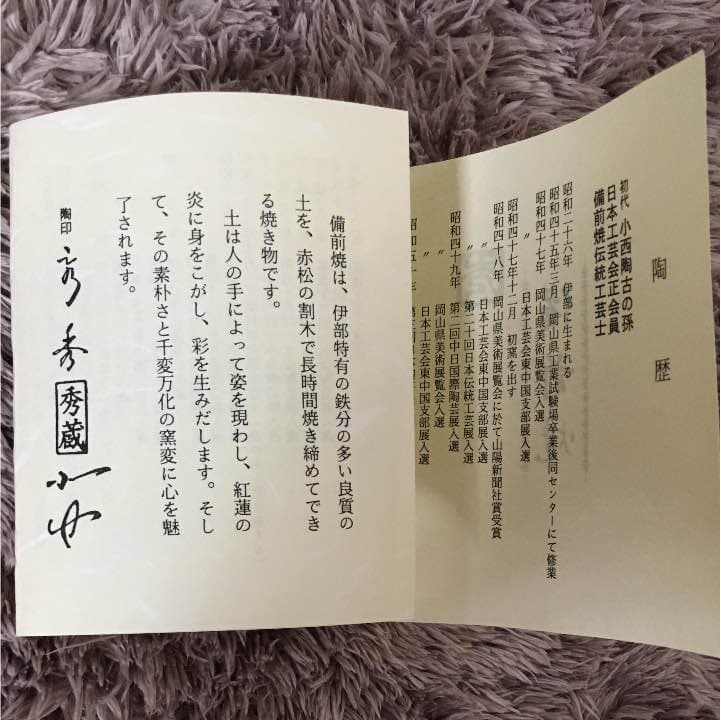 陶歴
初代 小西陶古の孫
日本工芸会正会員
備前焼伝統工芸士
昭和二十六年 伊部に生まれる
昭和四十五年三月 岡山県工業試験場卒業後同センターにて修業
昭和四十七年 岡山県美術展覧会入選
〃 日本工芸会東中国支部展入選
昭和四十七年十二月 初窯を出す
昭和四十八年 岡山県美術展覧会に於て山陽新聞社賞受賞
〃 日本工芸会東中国支部展入選
〃 第二十回日本伝統工芸展入選
昭和四十九年 第二回中日国際陶芸展入選
〃 日本工芸会東中国支部展入選
備前焼は、伊部特有の鉄分の多い良質の
土を、赤松の割木で長時間焼き締めてでき
る焼き物です。
土は人の手によって姿を現わし、紅蓮の
炎に身をこがし、彩を生みだします。そし
て、その素朴さと千変万化の窯変に心を魅
了されます。
陶印 秀 秀蔵